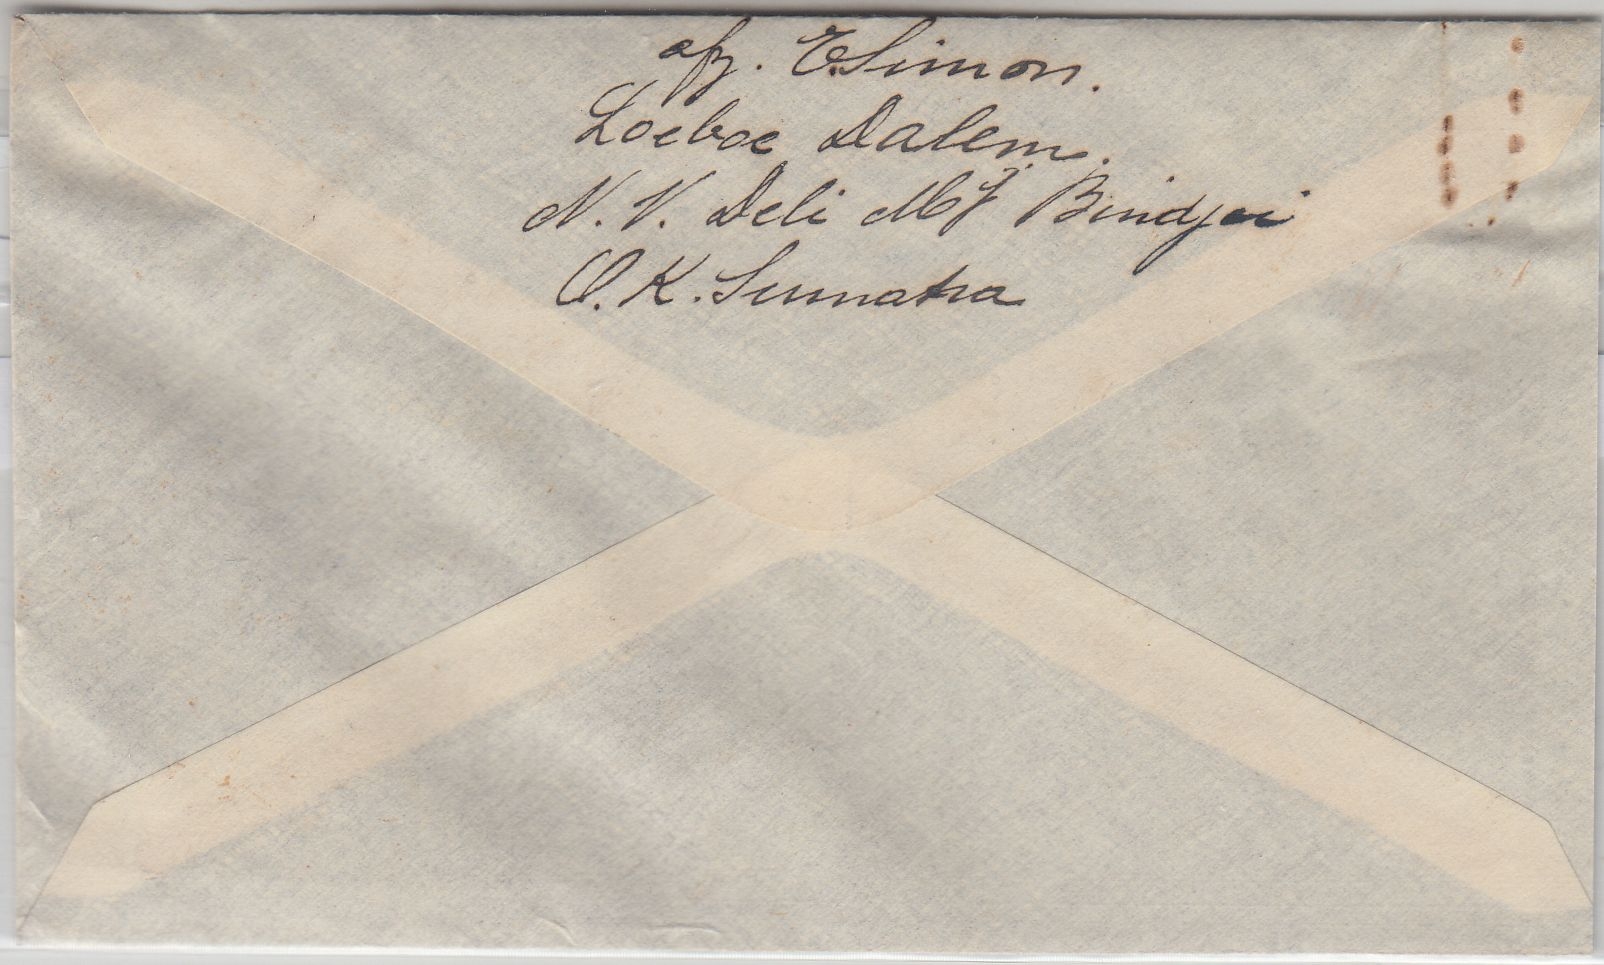 afz. E. Simon.
Loeboe Dalem.
N. V. Deli Mij Bindjei
O. K. Sumatra